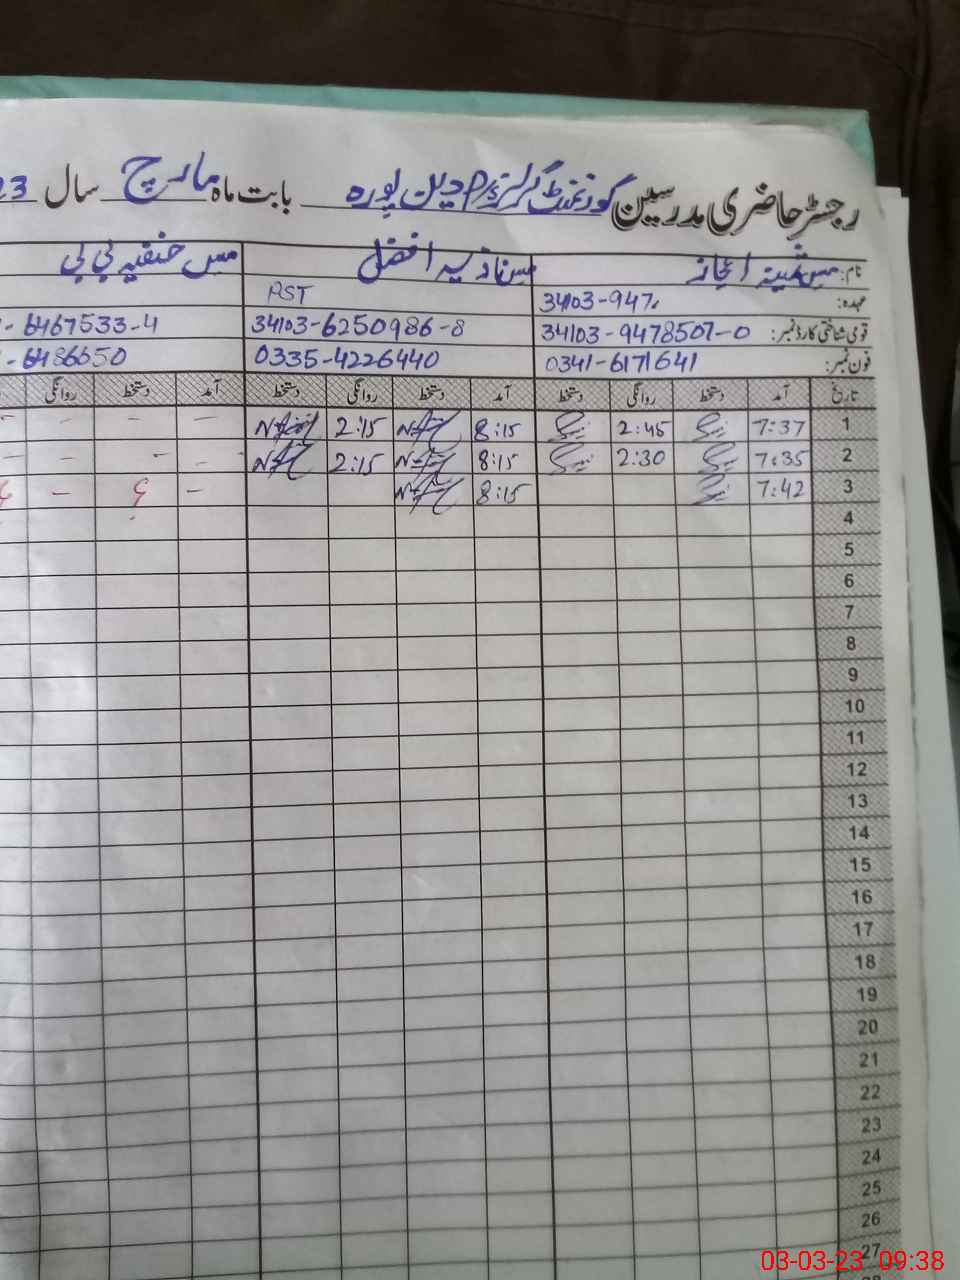 رجسٹر حاضری مدرسین گورنمنٹ گرلز P دین پورہ بابت ماہ مارچ سال 23
نام: مس ثمینہ اعجاز مس نازیہ افضل مس حنفیہ بی بی
عہدہ: 34103-947 PST
قومی شناختی کارڈ نمبر: 34103-9478507-0 34103-6250986-8 6467533-4
فون نمبر: 0341-6171641 0335-4226440 6486650
تاریخ آمد دستخط روانگی دستخط آمد دستخط روانگی دستخط آمد دستخط روانگی
1 7:37 2:45 8:15 2:15 - - - -
2 7:35 2:30 8:15 2:15 - - - -
3 7:42 8:15 - ؟ -
4
5
6
7
8
9
10
11
12
13
14
15
16
17
18
19
20
21
22
23
24
25
26
27
03-03-23 09:38